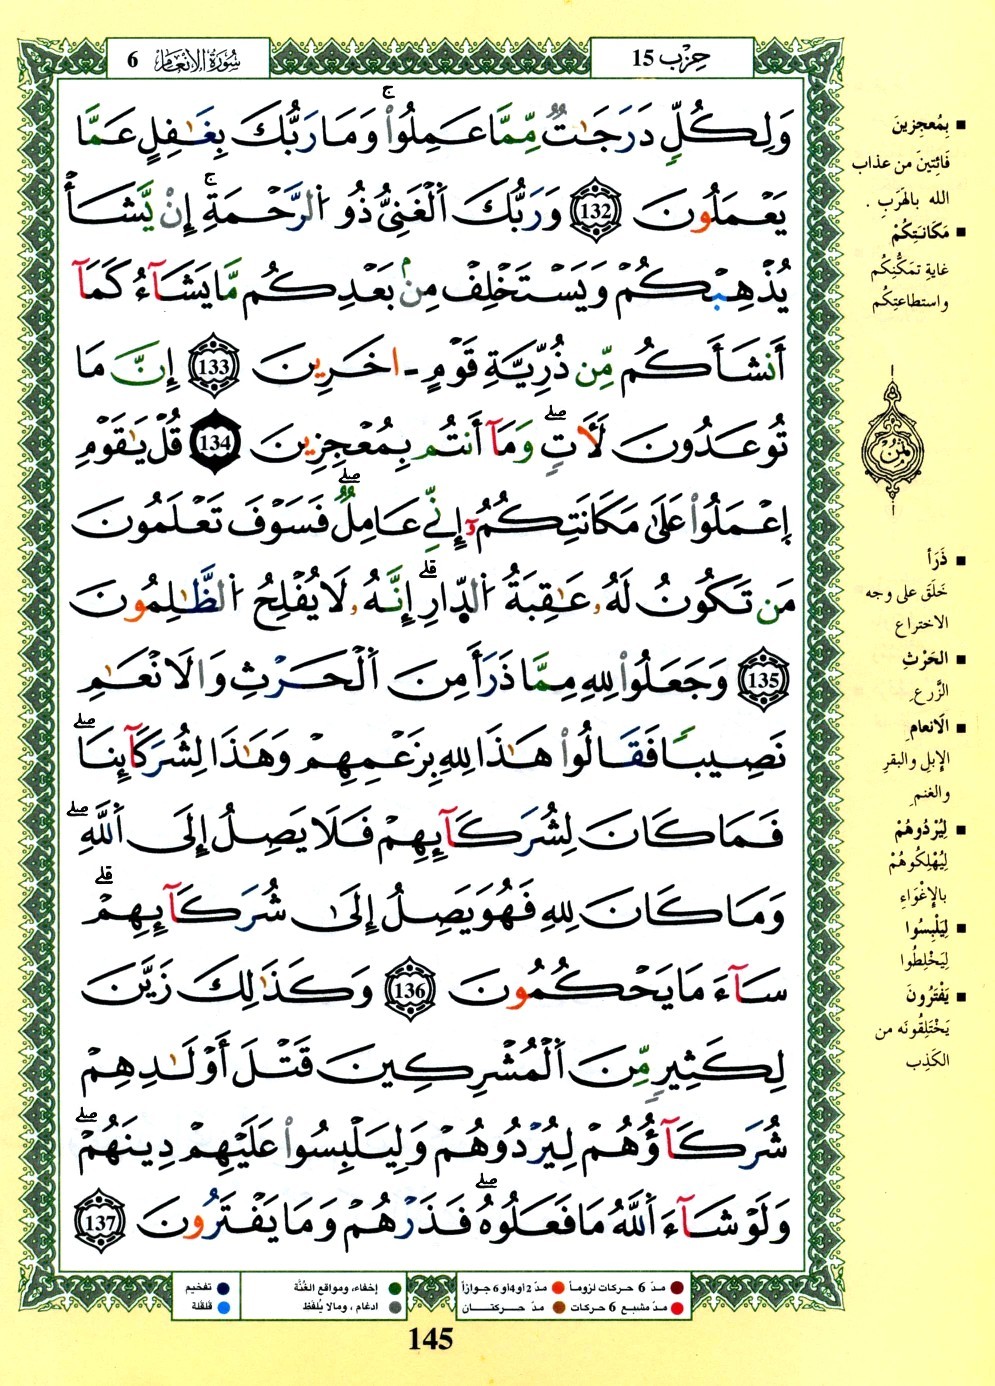 سُورَةُ الانْعَام 6
حِزْب 15
وَلِكُلٍّ دَرَجَٰتٌ مِّمَّا عَمِلُواْۚ وَمَا رَبُّكَ بِغَٰفِلٍ عَمَّا
يَعْمَلُونَ 132 وَرَبُّكَ اَلْغَنِيُّ ذُو اُلرَّحْمَةِۚ إِنْ يَّشَأْ
يُذْهِبْكُمْ وَيَسْتَخْلِفْ مِنۢ بَعْدِكُم مَّا يَشَآءُ كَمَآ
أَنشَأَكُم مِّن ذُرِّيَّةِ قَوْمٍ ـ اخَرِينَ 133 إِنَّ مَا
تُوعَدُونَ لَأَتٖۖ وَمَآ أَنتُم بِمُعْجِزِينَ 134 قُلْ يَٰقَوْمِ
اِعْمَلُواْ عَلَىٰ مَكَانَتِكُمُۥٓ إِنِّے عَامِلٌۖ فَسَوْفَ تَعْلَمُونَ
مَن تَكُونُ لَهُۥ عَٰقِبَةُ اُلدّ۪ارِۗ إِنَّهُۥ لَا يُفْلِحُ اُلظَّٰلِمُونَ
135 وَجَعَلُواْ لِلهِ مِمَّا ذَرَأَ مِنَ اَلْحَرْثِ وَالَانْعَٰمِ
نَصِيباٗ فَقَالُواْ هَٰذَا لِلهِ بِزَعْمِهِمْ وَهَٰذَا لِشُرَكَآئِنَاۖ
فَمَا كَانَ لِشُرَكَآئِهِمْ فَلَا يَصِلُ إِلَى اَللَّهِۖ
وَمَا كَانَ لِلهِ فَهُوَ يَصِلُ إِلَىٰ شُرَكَآئِهِمْۗ
سَآءَ مَا يَحْكُمُونَ 136 وَكَذَٰلِكَ زَيَّنَ
لِكَثِيرٖ مِّنَ اَلْمُشْرِكِينَ قَتْلَ أَوْلَٰدِهِمْ
شُرَكَآؤُهُمْ لِيُرْدُوهُمْ وَلِيَلْبِسُواْ عَلَيْهِمْ دِينَهُمْۖ
وَلَوْ شَآءَ اَللَّهُ مَا فَعَلُوهُۖ فَذَرْهُمْ وَمَا يَفْتَرُونَ 137
■ بِمُعجزينَ
فَائِتينَ من عذاب
الله بالهَرَبِ .
■ مَكَانَتِكُمْ
غايةِ تمَكُّنِكُم
واستطاعتِكُم
ثُمُن
■ ذَرَأ
خَلَقَ على وجه
الاختراع
■ الحَرْثِ
الزَّرع
■ الَانعام
الإبلِ والبقرِ
والغنم
■ لِيُرْدُوهُمْ
لِيُهْلِكُوهُمْ
بالإغْوَاءِ
■ لِيَلْبِسُوا
لِيَخْلِطُوا
■ يَفْتَرُونَ
يَخْتَلِقُونَه من
الكَذِب
مدّ 6 حركات لزوماً
مدّ 2 أو 4 أو 6 جوازاً
إخفاء، ومواقع الغُنَّة
تفخيم
مدّ مشبع 6 حركات
مدّ حركتان
ادغام ، ومالا يُلفَظ
قلقلة
145